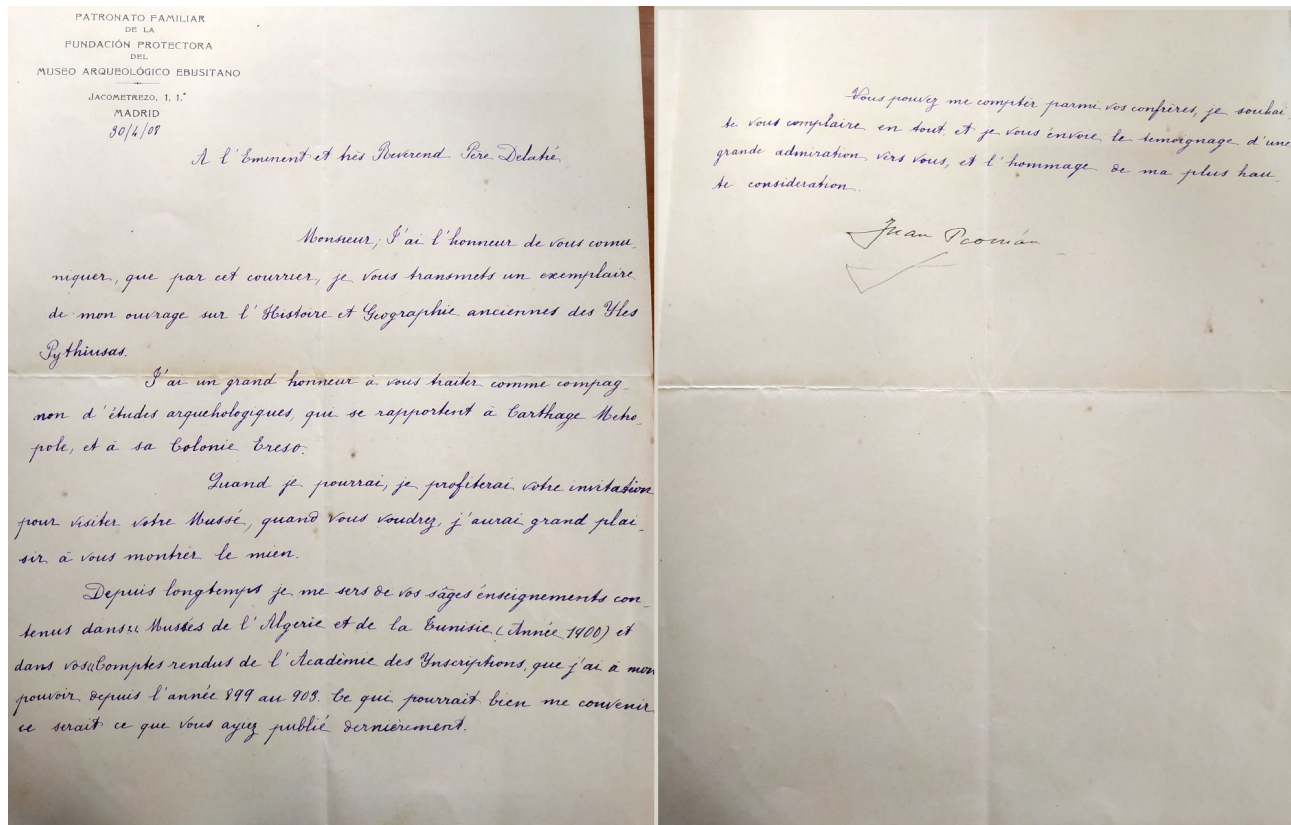 PATRONATO FAMILIAR
DE LA
FUNDACIÓN PROTECTORA
DEL
MUSEO ARQUEOLÓGICO EBUSITANO
JACOMETREZO, 1, 1.°
MADRID
30/4/08
A l'Eminent et très Reverend Père Delatié
Monsieur; J'ai l'honneur de vous comu-
niquer, que par cet courrier, je vous transmets un exemplaire
de mon ouvrage sur l'Histoire et Geographie anciennes des Yles
Pythiusas.
J'ai un grand honneur à vous traiter comme compag-
non d'études arquehologiques, qui se rapportent à Carthage Metro-
pole, et à sa Colonie Ereso.
Quand je pourrai, je profiterai votre invitation
pour visiter votre Mussé, quand vous voudrez, j'aurai grand plai-
sir à vous montrer le mien.
Depuis longtemps je me sers de vos sâges énseignements con-
tenus dans Musées de l'Algerie et de la Tunisie (Année 1900) et
dans vos Comptes rendus de l'Academie des Ynscriptions, que j'ai à mon
pouvoir, depuis l'année 899 au 903. Ce qui pourrait bien me convenir
ce serait ce que vous ayiez publié dernièrement.
Vous pouvez me compter parmi vos confrères, je souhai-
te vous complaire en tout, et je vous énvoie le temorgnage d'une
grande admiration vers vous, et l'hommage de ma plus hau-
te consideration.
Juan Román